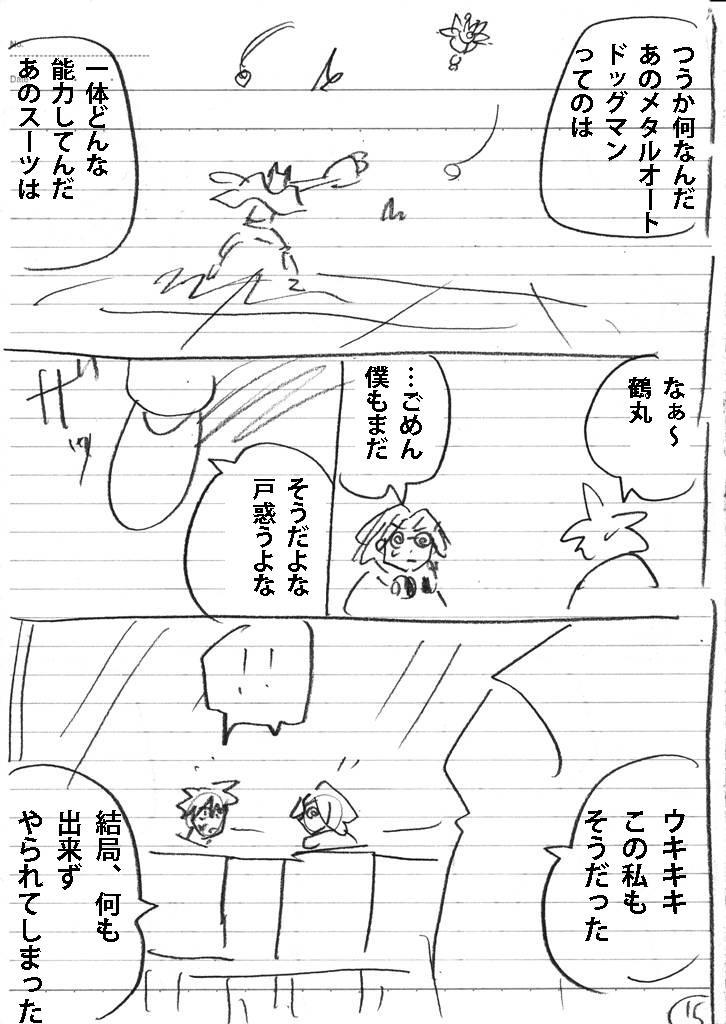 つうか何なんだ
あのメタルオート
ドッグマン
ってのは
一体どんな
能力してんだ
あのスーツは
なぁ～
鶴丸
…ごめん
僕もまだ
そうだよな
戸惑うよな
!!
ウキキキ
この私も
そうだった
結局、何も
出来ず
やられてしまった
15